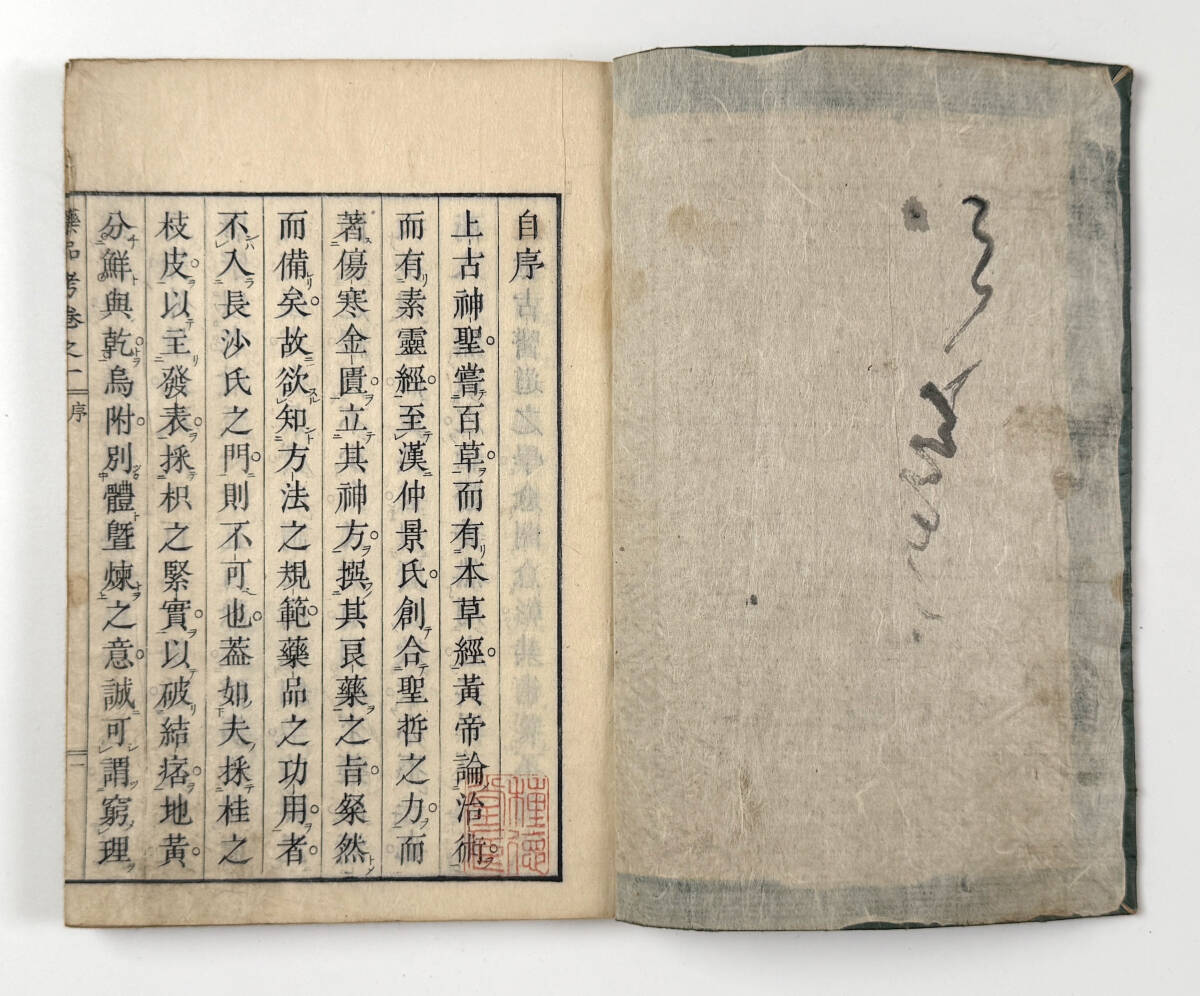 自序
上古神聖嘗百草而有本草經黃帝論治術
而有素靈經至漢仲景氏創合聖哲之力而
著傷寒金匱立其神方撰其良藥之旨粲然
而備矣故欲知方法之規範藥品之功用者
不入長沙氏之門則不可也蓋如夫採桂之
枝皮以主發表採枳之緊實以破結痞地黃
分鮮與乾烏附別體曁煉之意誠可謂窮理
藥品考卷之一
序
一